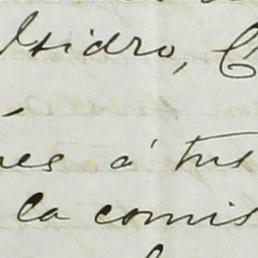 Isidro, C
es á tus
la comis